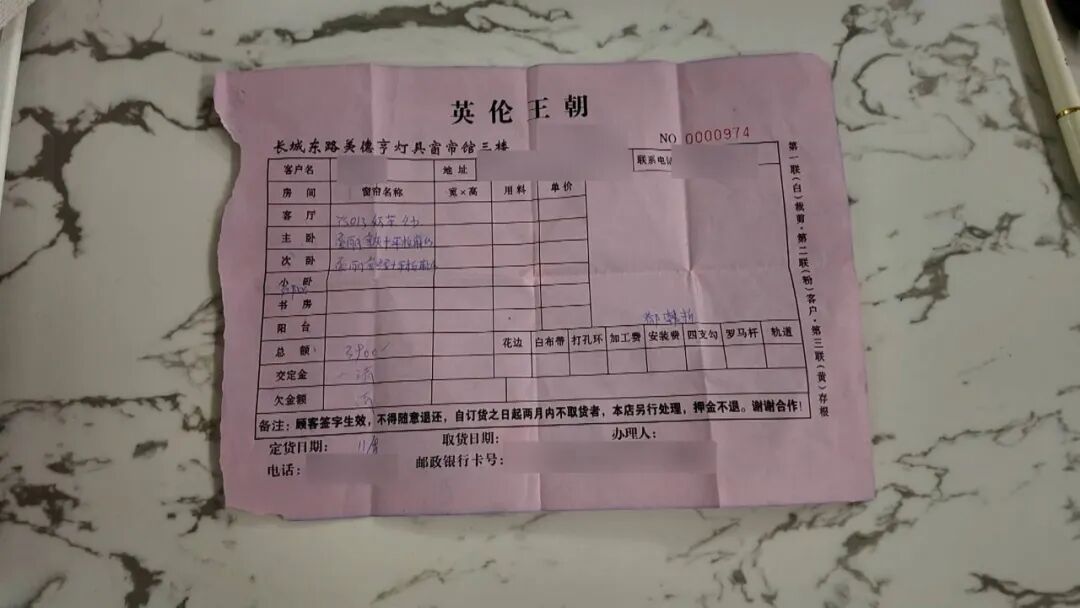 英伦王朝
NO 0000974
长城东路美德亨灯具窗帘馆三楼
客户名 地址 联系电
房间 窗帘名称 宽×高 用料 单价
客厅
主卧
次卧
小卧
书房
阳台
花边 白布带 打孔环 加工费 安装费 四支勾 罗马杆 轨道
总额 3900
交定金
欠金额
备注：顾客签字生效，不得随意退还，自订货之日起两月内不取货者，本店另行处理，押金不退。谢谢合作！
定货日期： 取货日期： 办理人：
电话： 邮政银行卡号：
第一联(白)裁剪·第二联(粉)客户·第三联(黄)存根